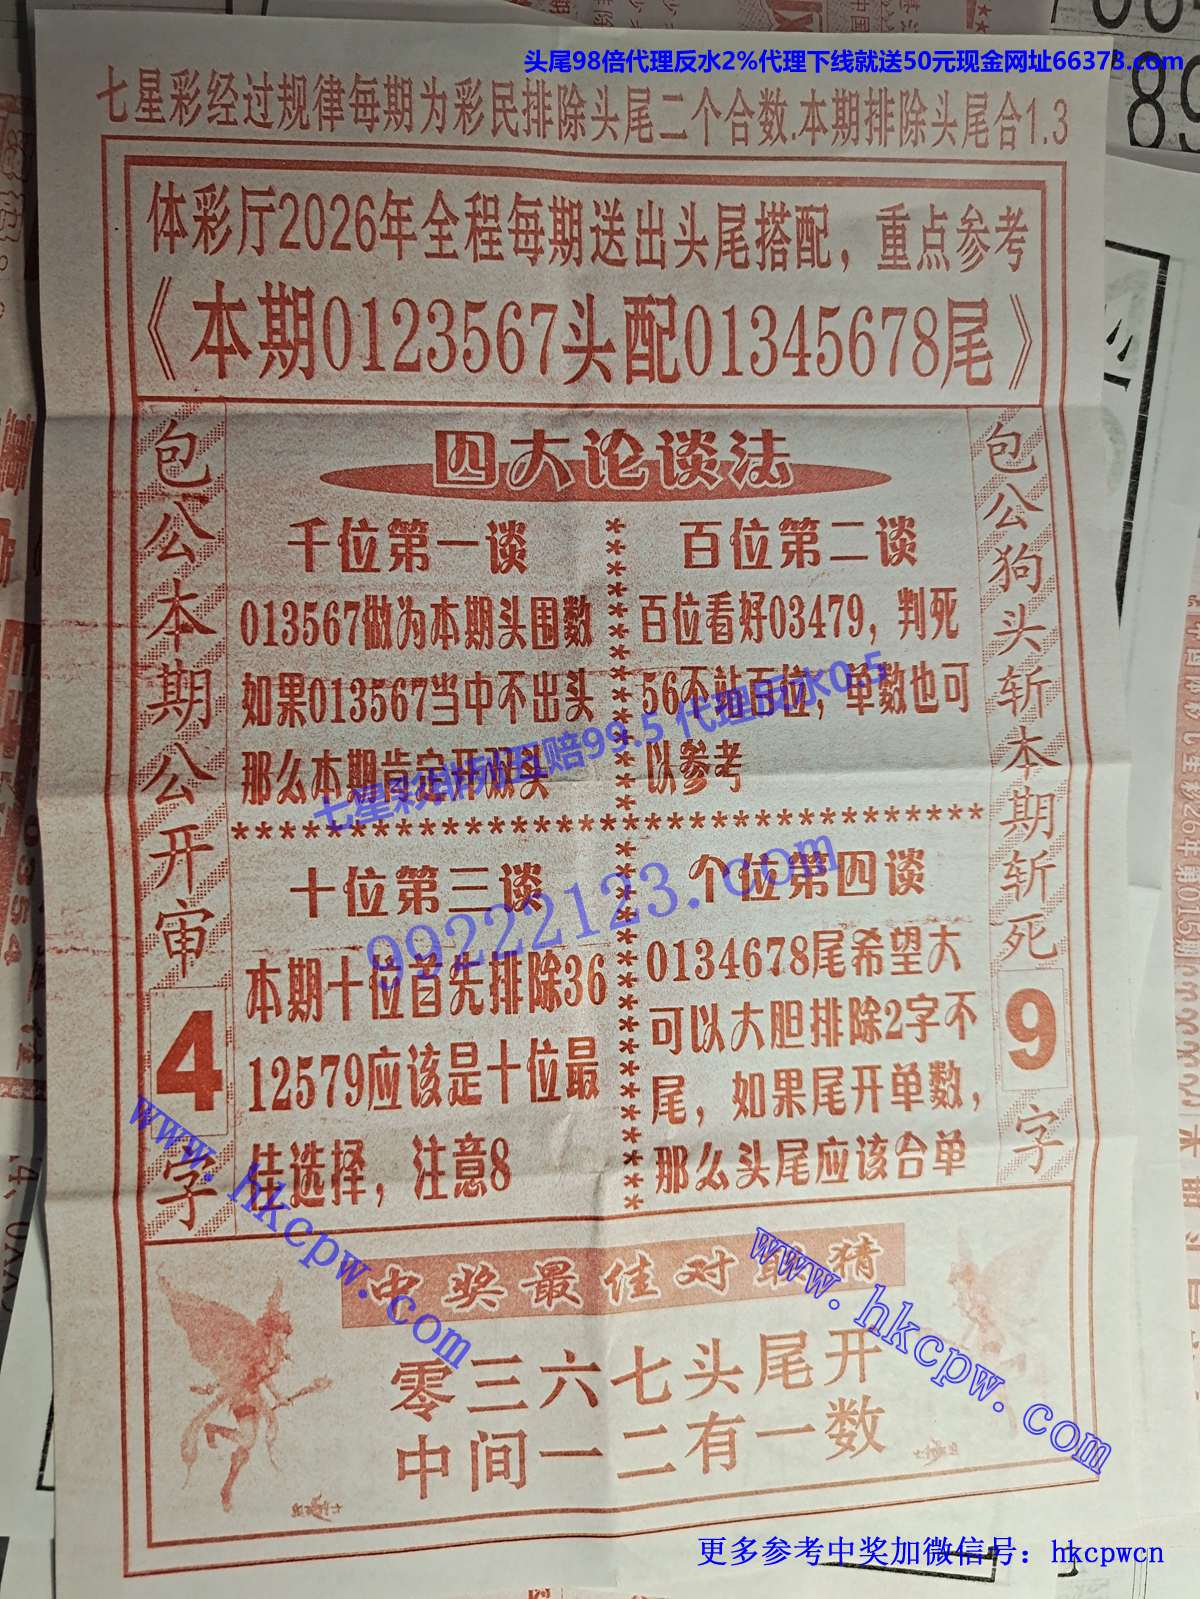 头尾98倍代理反水2%代理下线就送50元现金网址66373.com
七星彩经过规律每期为彩民排除头尾二个合数.本期排除头尾合1.3
体彩厅2026年全程每期送出头尾搭配，重点参考
《本期0123567头配01345678尾》
包公本期公开审4字
四大论谈法
千位第一谈
013567做为本期头围数
如果013567当中不出头
那么本期肯定开双头
百位第二谈
百位看好03479，判死
56不站百位，单数也可
以参考
七星彩排列五赔99.5 代理反水0.5
99222123.com
十位第三谈
本期十位首先排除36
12579应该是十位最
佳选择，注意8
个位第四谈
0134678尾希望大
可以大胆排除2字不
尾，如果尾开单数，
那么头尾应该合单
包公狗头斩本期斩死9字
www.hkcpw.com
www.hkcpw.com
中奖最佳对联猜
零三六七头尾开
中间一二有一数
更多参考中奖加微信号：hkcpwcn